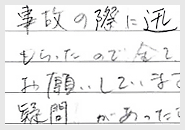 事故の際に迅
もらったので全て
お願いしています
疑問 があった